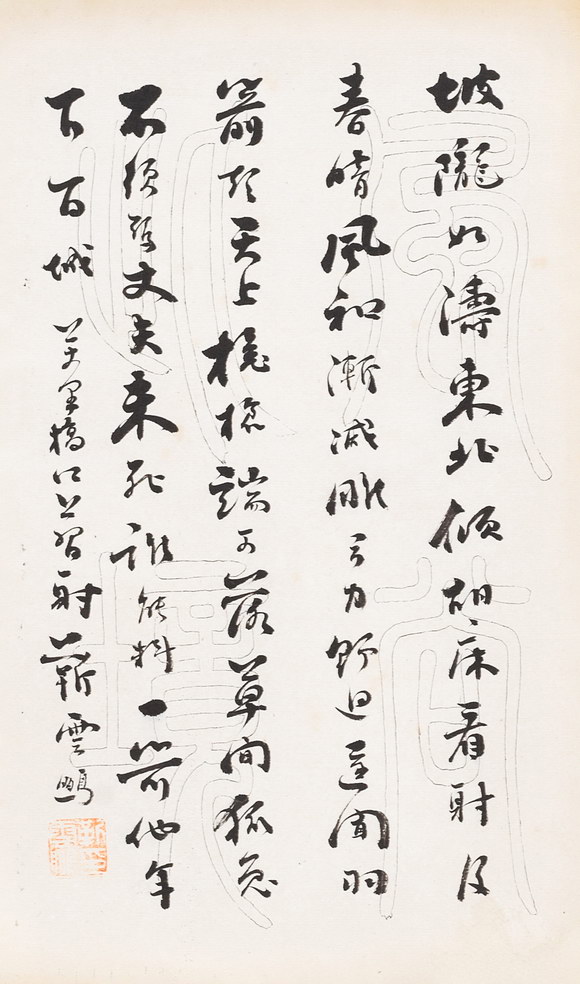 坡隴如濤東北傾胡床看射及
春晴風和漸減雕弓力野迥遙聞羽
箭聲天上欃槍端可落草間狐兔
不須驚丈夫未死誰能料一箭他年
下百城 萬里橋江上習射 靳雲鵬